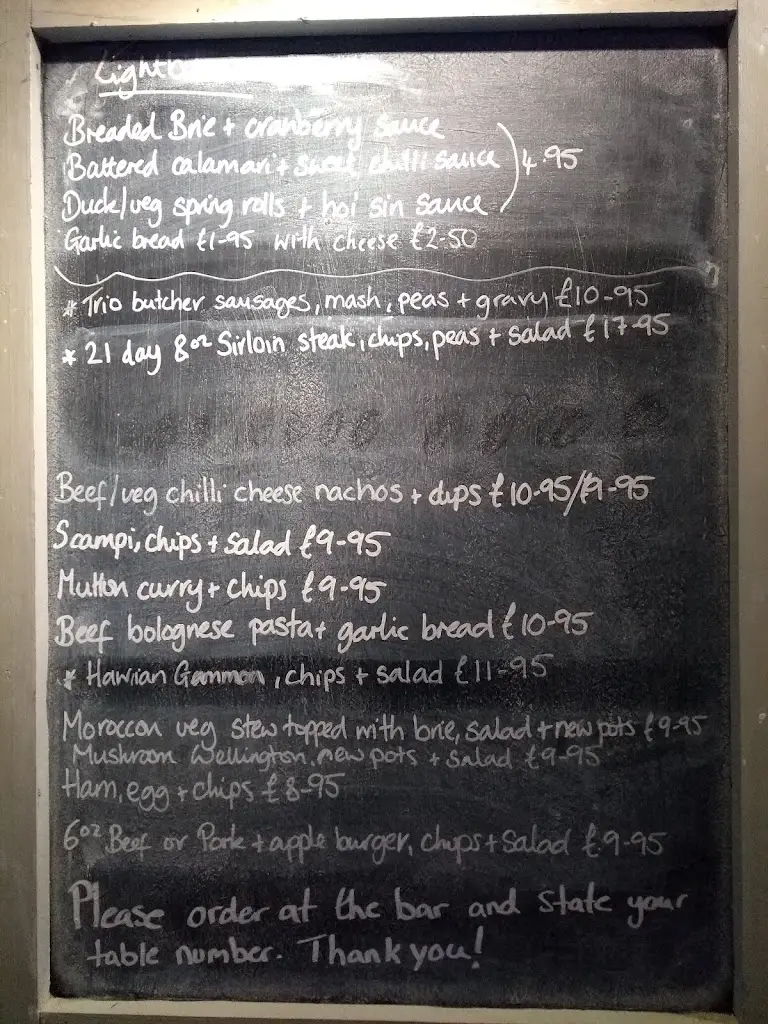 Breaded Brie + cranberry sauce
Battered calamari + sweet chilli sauce 4.95
Duck/veg spring rolls + hoi sin sauce
Garlic bread £1-95 with cheese £2-50
* Trio butcher sausages, mash, peas + gravy £10-95
* 21 day 8oz Sirloin steak, chips, peas + salad £17-95
Beef/veg chilli cheese nachos + dips £10-95/£9-95
Scampi, chips + salad £9-95
Mutton curry + chips £9-95
Beef bolognese pasta + garlic bread £10-95
* Hawiian Gammon, chips + salad £11-95
Moroccon veg stew topped with brie, salad + new pots £9-95
Mushroom Wellington, new pots + salad £9-95
Ham, egg + chips £8-95
6oz Beef or Pork + apple burger, chips + salad £9-95
Please order at the bar and state your
table number. Thank you!